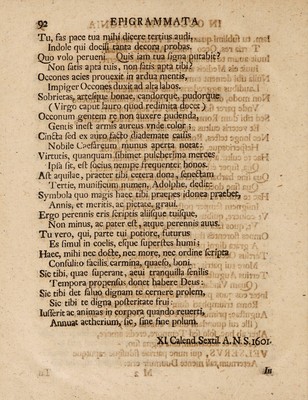 92 EPIGRAMMATA
Tu, fas pace tua mihi dicere tertius audi,
Indole qui docili tanta decora probas.
Quo volo perueni. Quis iam tua signa putabit?
Non satis apta tuis, non satis apta tibi?
Occones acies prouexit in ardua mentis,
Impiger Occones duxit ad alta labos.
Sobrietas, artesque bonae, candorque, pudorque
(Virgo caput lauro quod redimita docet)
Occonum gentem re non auxere pudenda,
Gentis inest armis aureus vnde color:
Cincta sed ex auro facto diademate cassis
Nobile Caesareum munus aperta notat:
Virtutis, quanquam sibimet pulcherrima merces
Ipsa sit, est socius nempe frequenter honos.
Ast aquilae, praeter tibi cetera dona, senectam
Tertie, muniscium numen, Adolphe, dedit:
Symbola quo magis haec tibi praepes idonea praebet,
Annis, et meritis, ac pietate, graui.
Ergo perennis eris scriptis aliisque tuisque,
Non minus, ac pater est, atque perennis auus.
Tu vero, qui, parte tui potiore, futurus
Es simul in coelis, esque superstes humi:
Haec, mihi nec docte, nec more, nec ordine scripta
Consulito facilis carmina, quaeso, boni.
Sic tibi, quae superant, aeui tranquilla senilis
Tempora propensus donet habere Deus:
Sic tibi det saluo dignam te cernere prolem,
Sic tibi te digna posteritate frui:
Iusserit ac animas in corpora quando reuerti,
Annuat aetherium, sic, sine fine polum.
XI. Calend. Sextil. A. N. S. 1601.
In